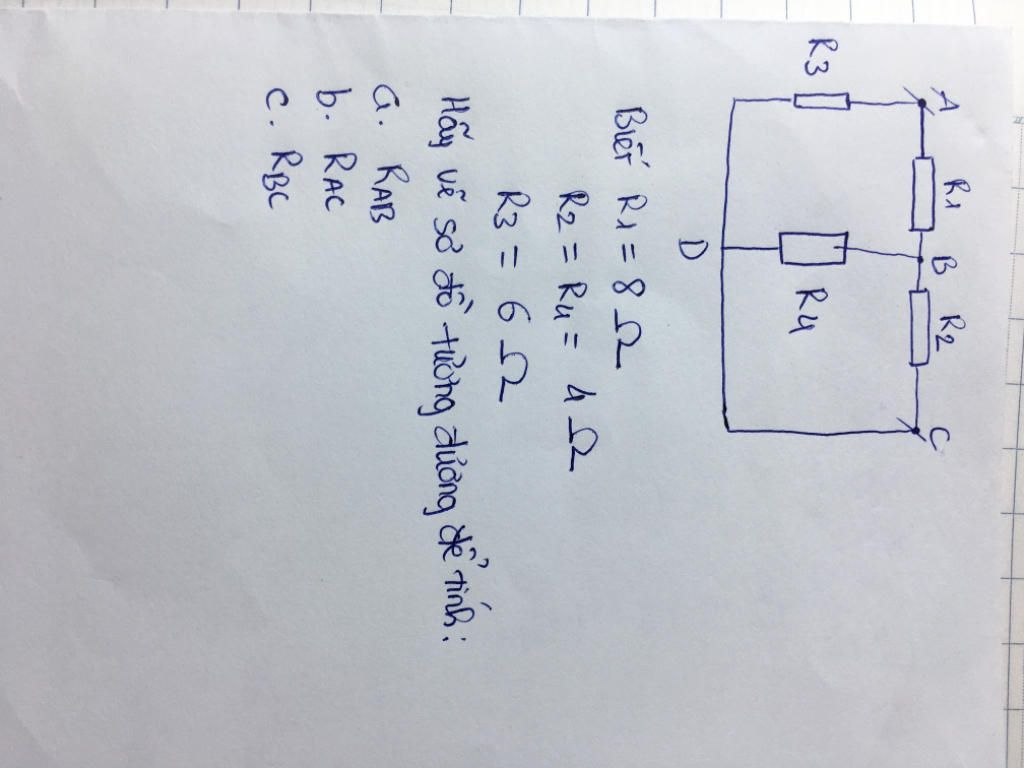 A R1 B R2 C
R3 R4
D
Biết R1 = 8 Ω
R2 = R4 = 4 Ω
R3 = 6 Ω
Hãy vẽ sơ đồ tương đương để tính:
a. RAB
b. RAC
c. RBC